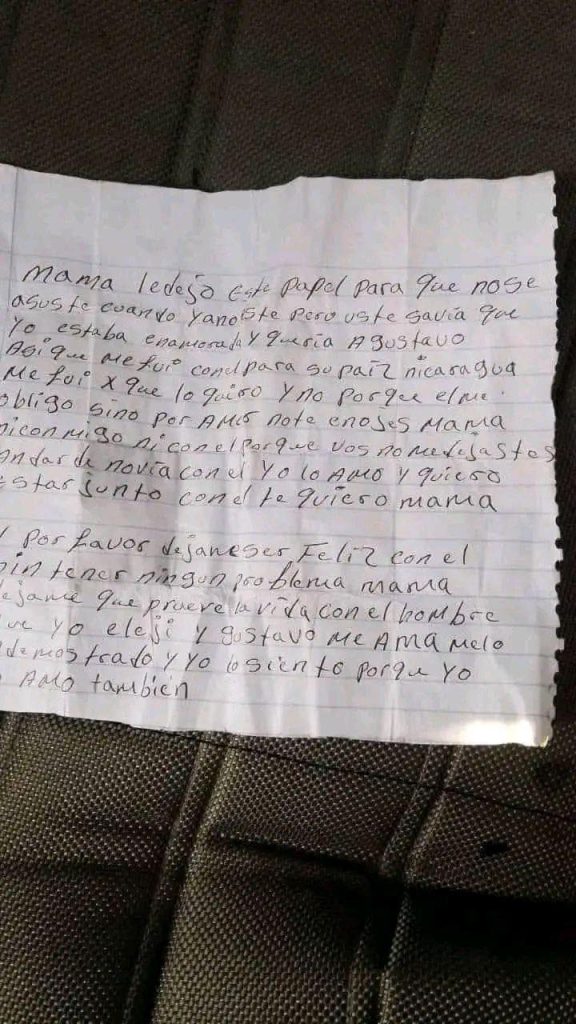 Mama ledejo este papel para que nose
asuste cuando yanoiste pero uste savia que
Yo estaba enamorada y queria AGustavo
Asi que me fui conelpara su paiz nicaragua
Me fui x que lo quiro y no porque elme.
obligo sino por AMOR note enojes Mama
niconmigo ni conelporque vos nomedejastes
andar de novia con el Yo lo AMO y quiero
estar junto conel te quiero mama
por favor dejameser Feliz con el
sin tener ningun problema mama
dejame que prueve la vida con el hombre
que yo eleji y gustavo Me AMA Melo
ademostrado y Yo losiento porque Yo
AMO también